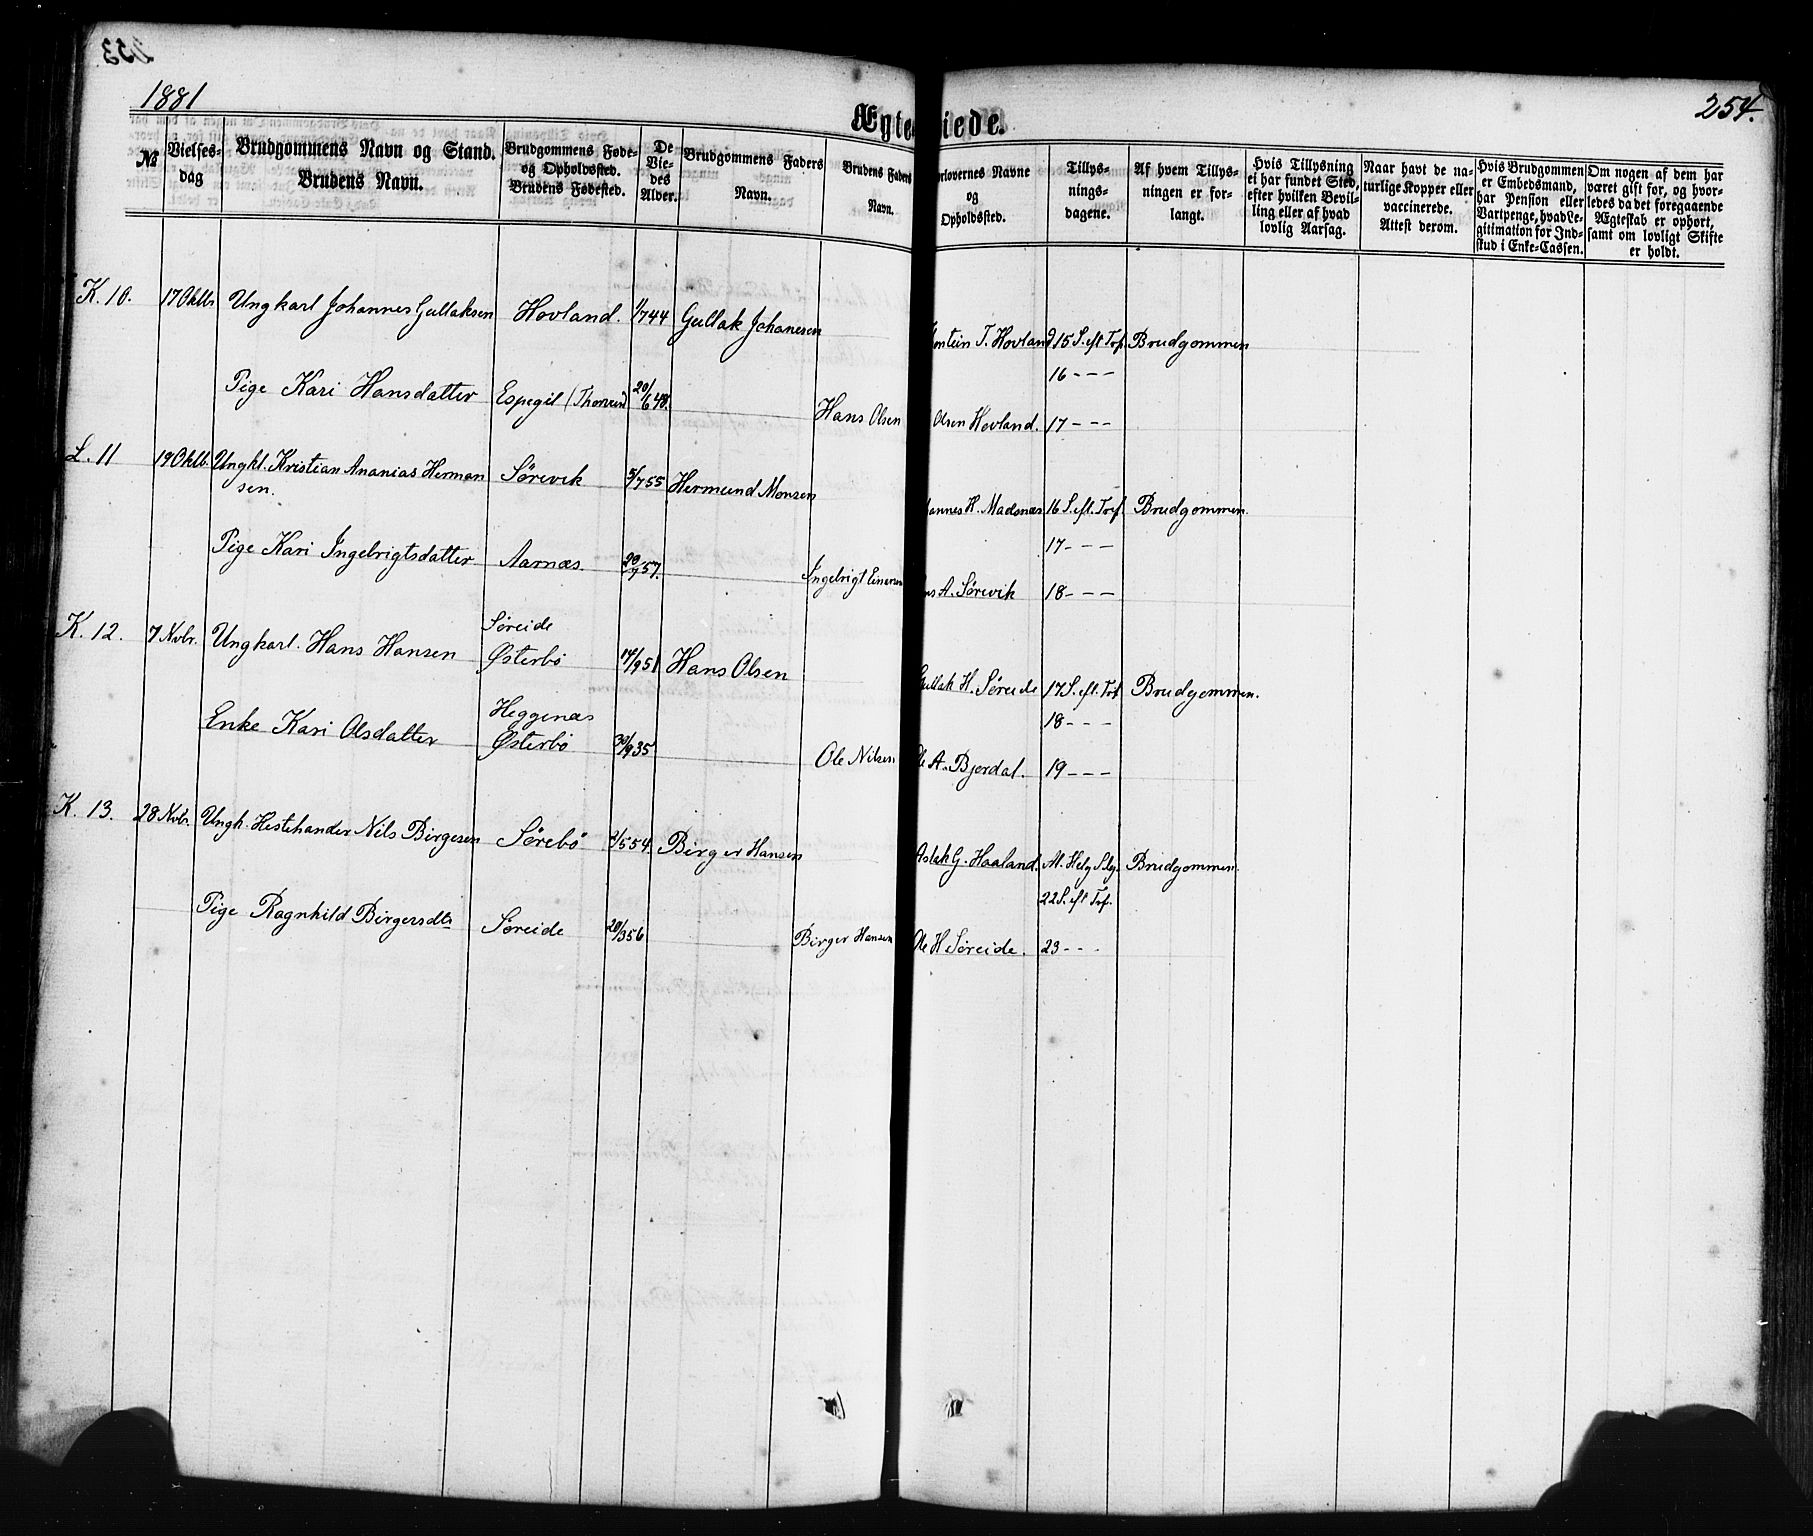 1881
254.
Ægteviede.
No
Vielses-dag
Brudgommens Navn og Stand. Brudens Navn.
Brudgommens Føde- og Opholdssted. Brudens Fødested.
De Vie-des Alder.
Brudgommens Faders Navn.
Brudens Faders Navn.
orlovernes Navne og Opholdssted.
Tillys-nings-dagene.
Af hvem Tillys-ningen er for-langt.
Hvis Tillysning ei har fundet Sted, efter hvilken Bevil-ling eller af hvad lovlig Aarsag.
Naar havt de na-turlige Kopper eller vaccinerede. Attest derom.
Hvis Brudgommen er Embedsmand, har Pension eller Vartpenge, hvad Le-gitimation for Ind-skud i Enke-Cassen.
Om nogen af dem har været gift før, og hvor-ledes da det foregaaende Ægteskab er ophørt, samt om lovligt Skifte er holdt.
K. 10. 17 Oktbr Ungkarl Johannes Gullaksen Hovland. 1/7 44 Gullak Johanesen T. Hovland 15 S. eft Tref. Brudgommen
16 - - -
Pige Kari Hansdatter Espegil 20/6 48. Hans Olsen Olsen Hovland. 17 - - -
L. 11 19 Oktb. Ungkl. Kristian Ananias Herman Sørevik 5/7 55 Hermund Monsen annes H. Madsnæs 16 S. eft. Tref. Brudgommen.
sen.
17 - - -
Pige Kari Ingebrigtsdatter Aarnæs. 20/7 57. Ingebrigt Einersen A. Sørevik 18 - - -
K. 12. 7 Novbr. Ungkarl. Hans Hansen Søreide
Østerbø 14/9 51 Hans Olsen Gullak H. Søreide 17 S. eft. Tref Brudgommen.
18 - - -
Enke Kari Olsdatter Heggenæs
Østerbø 30/9 35 Ole Nilsen Ole A. Bjordal. 19 - - -
K. 13. 28 Novbr. Ungk. Hestehandler Nils Birgesen Sørebø 2/5 54. Birger Hansen Aslak G. Haaland. Al. Helg. Dg. Brudgommen.
22 S. eft Tref.
Pige Ragnhild Birgersdtr Søreide 20/3 56 Birger Hansen Ole H Søreide. 23 - - -